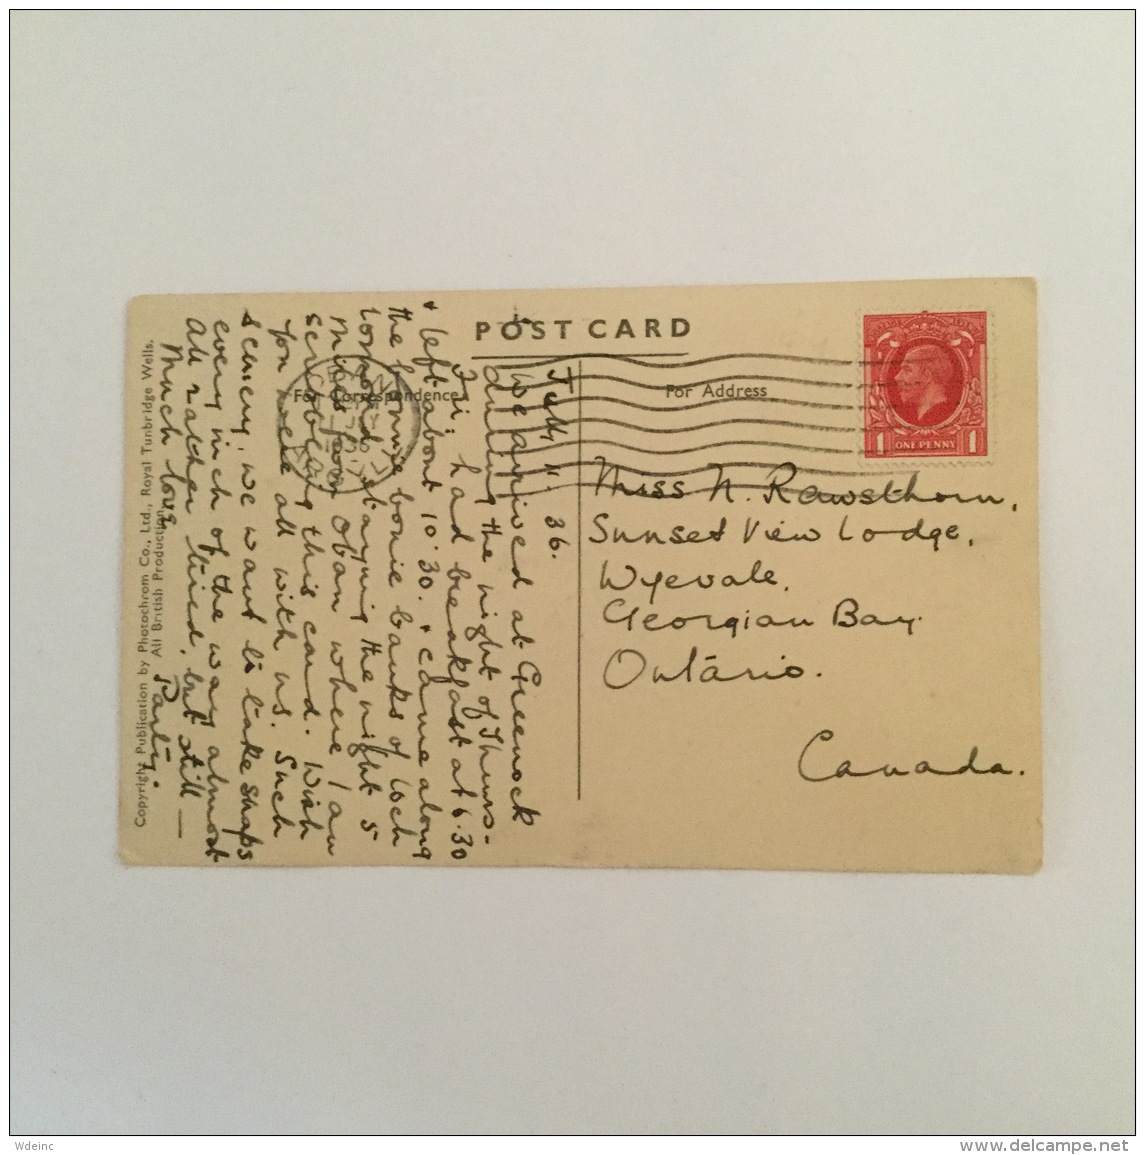 POST CARD
For Correspondence
For Address
1 ONE PENNY 1
Miss N. Rawsthorn,
Sunset View Lodge,
Wyevale.
Georgian Bay.
Ontario.
Canada.
July 11. 36.
We arrived at Greenock
during the night of Thurs-
Fri; had breakfast at 6.30
& left about 10.30. & came along
the bonnie bonie banks of Loch
Lomond, staying the night 5
miles from Oban where I am
scribbling this card. Wish
you were all with us. Such
scenery, we want to take snaps
every inch of the way almost
All rather tired, but still —
Much love
Copyright Publication by Photochrom Co., Ltd., Royal Tunbridge Wells.
All British Production.
Wdeinc
www.delcampe.net